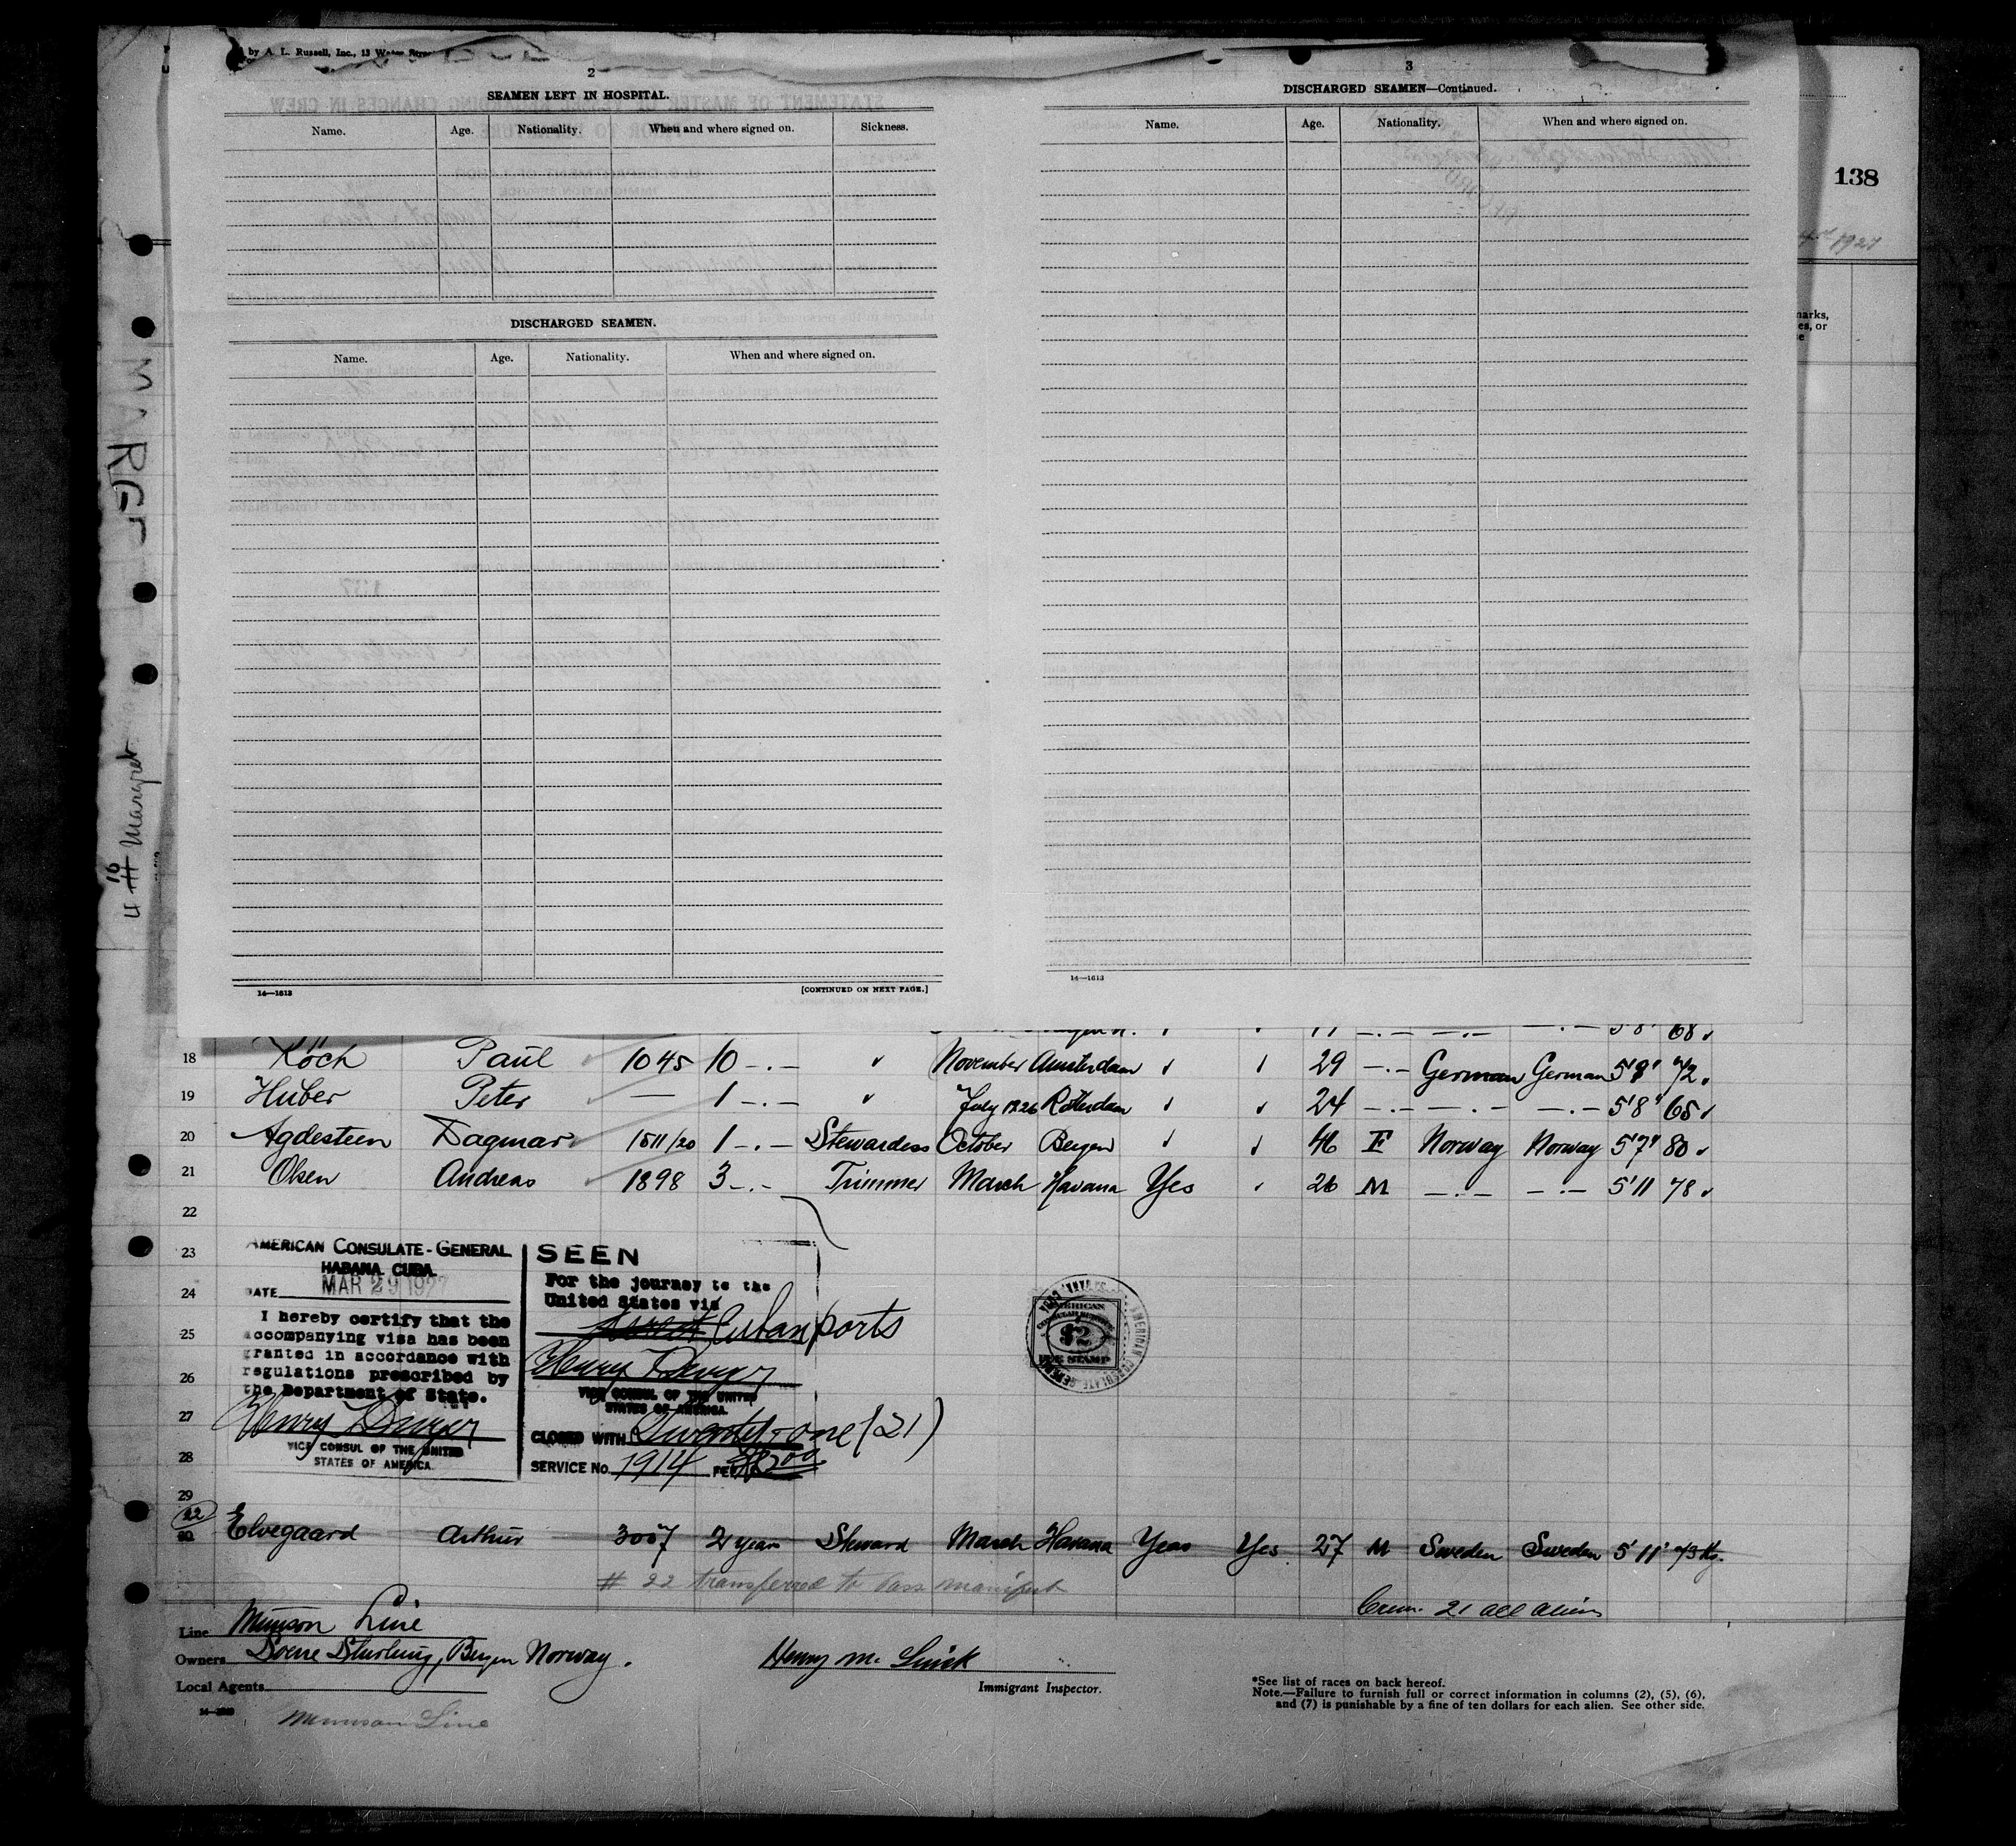 by A. L. Russell, Inc., 13 Water Street
2
SEAMEN LEFT IN HOSPITAL.
Name. Age. Nationality. When and where signed on. Sickness.
DISCHARGED SEAMEN.
Name. Age. Nationality. When and where signed on.
14—1613
[CONTINUED ON NEXT PAGE.]
3
DISCHARGED SEAMEN—Continued.
Name. Age. Nationality. When and where signed on.
14—1613
138
1927
marks,
es, or
e
MARGE
Margret
16
5'8" 68 ✓
18 Koch Paul 1045 10 -.- ✓ November Amsterdam ✓ ✓ 29 -.- German German 5'8" 72 ✓
19 Huber Peter — 1 -.- ✓ July 1926 Rotterdam ✓ ✓ 24 -.- -.- -.- 5'8" 65 ✓
20 Agdesteen Dagmar 1511/20 1 -.- Stewardess October Bergen ✓ ✓ 46 F Norway Norway 5'7" 80 ✓
21 Olsen Andreas 1898 3 -.- Trimmer March Havana Yes ✓ 26 M -.- -.- 5'11 78 ✓
22
23
24
25
26
27
28
29
AMERICAN CONSULATE-GENERAL
HABANA CUBA
DATE MAR 29 1927
I hereby certify that the
accompanying visa has been
granted in accordance with
regulations prescribed by
the Department of State.
VICE CONSUL OF THE UNITED
STATES OF AMERICA
SEEN
For the journey to the
United States via
Cuban ports
VICE CONSUL OF THE UNITED
STATES OF AMERICA.
CLOSED WITH Twenty-one (21)
SERVICE No. 1914 FEE
AMERICAN
$2
FEE STAMP
22
30 Elvegaard Arthur 3007 2 years Steward March Havana Yes Yes 27 M Sweden Sweden 5'11" 73 Kg.
# 22 transferred to Pass manifest
Crew. 21 all aliens
Line Munson Line
Owners Bergen Norway.
Local Agents
Munson Line
Henry M.
Immigrant Inspector.
*See list of races on back hereof.
Note.—Failure to furnish full or correct information in columns (2), (5), (6),
and (7) is punishable by a fine of ten dollars for each alien. See other side.